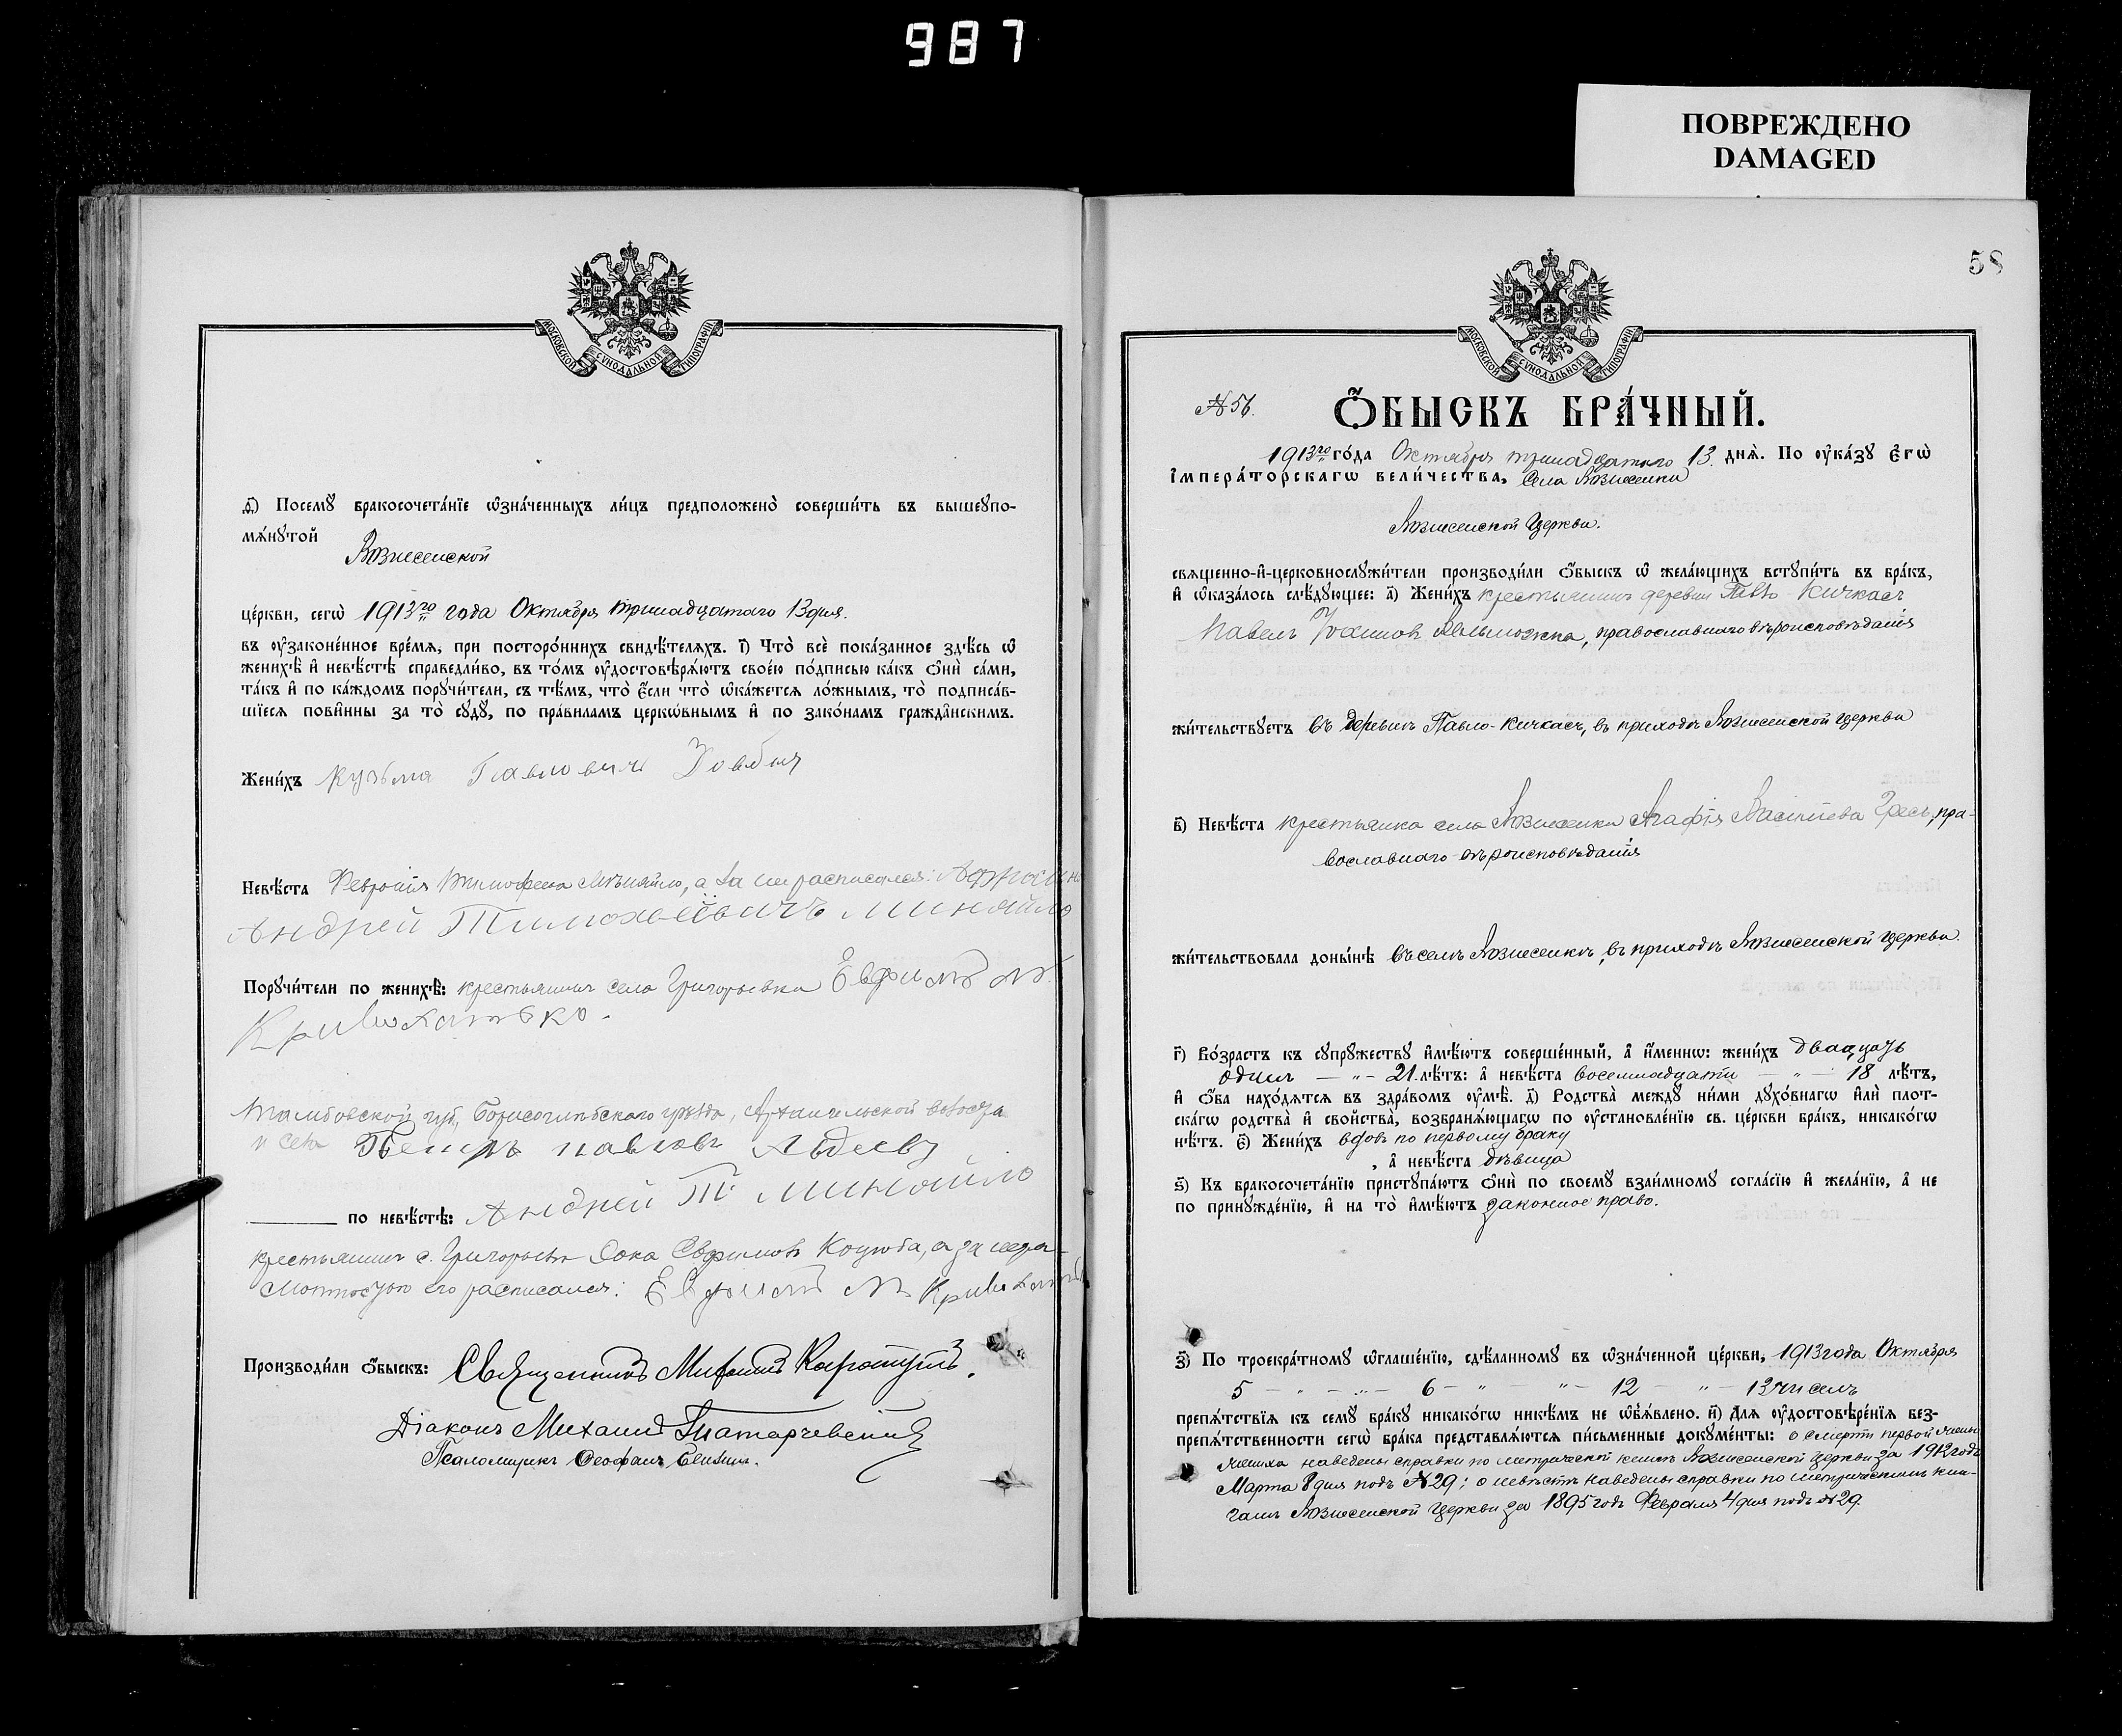 987
ПОВРЕЖДЕНО
DAMAGED
МОСКОВСКОЙ СѴНОДАЛЬНОЙ ТИПОГРАФІИ
ѳ҃) Посемꙋ̀ бракосочета́нїе ѡ҆зна́ченныхъ ли́цъ предположено̀ соверши́ть въ вышеꙋпо-
мѧ́нꙋтой
Вознесенской
це́ркви, сегѡ̀ 1913го года Октября тринадцатаго 13 дня.
въ ᲂу҆зако́ненное вре́мѧ, при посторо́ннихъ свидѣ́телѧхъ. і҃) Что̀ всѐ пока́занное здѣ́сь ѡ҆
женихѣ̀ и҆ невѣ́стѣ справедли́во, въ то́мъ ᲂу҆достовѣрѧ́ютъ свое́ю по́дписью ка́къ ѻ҆нѝ са́ми,
та́къ и҆ по ка́ждомъ порꙋчи́тели, съ тѣ́мъ, что̀ є҆́сли что̀ ѡ҆ка́жетсѧ ло́жнымъ, то̀ подписа́в-
шїесѧ пови́нны за то̀ сꙋдꙋ̀, по пра́виламъ церкѡ́внымъ и҆ по зако́намъ гражда́нскимъ.
Жени́хъ Кузьма Павловичъ Довбня
Невѣ́ста Февронія Тимофеева Миняйло, а за нея расписался:
Андрей Тимофеевичъ Миняйло
Порꙋчи́тели по женихѣ̀: крестьянинъ села Григорьевки Ефимъ М.
Кривохатько.
Тамбовской губ., Борисоглѣбскаго уѣзда, Архангельской волости
и села Петръ Павловъ
по невѣ́стѣ: Андрей Т. Миняйло
крестьянинъ с. Григорьевки Ефимовъ Коцюба, а за негра-
мотностью его расписался: Ефимъ М. Кривохатько
Производи́ли ѻ҆́быскъ: Священникъ Митрофанъ
Діаконъ Михаилъ
Псаломщикъ Ѳеофанъ
58
МОСКОВСКОЙ СѴНОДАЛЬНОЙ ТИПОГРАФІИ
№ 56.
Ѻ҆́БЫСКЪ БРА́ЧНЫЙ.
1913го го́да Октября тринадцатаго 13. днѧ̀. По ᲂу҆ка́зꙋ є҆гѡ̀
и҆мпера́торскагѡ вели́чества, Села Вознесенки
Вознесенской Церкви.
свѧще́нно-и҆-церковнослꙋжи́тели производи́ли ѻ҆́быскъ ѡ҆ жела́ющихъ встꙋпи́ть въ бра́къ,
и҆ ѡ҆каза́лось слѣ́дꙋющее: а҃) Жени́хъ крестьянинъ деревни Павло Кичкасъ
Павелъ Іоакимовъ Вельможка, православнаго вѣроисповѣданія
жи́тельствꙋетъ въ деревнѣ Павло-Кичкасъ, въ приходѣ Вознесенской церкви
в҃) Невѣ́ста крестьянка села Вознесенки Агафія Васильева Гресь, пра-
вославнаго вѣроисповѣданія
жи́тельствовала доны́нѣ въ селѣ Вознесенкѣ, въ приходѣ Вознесенской церкви.
г҃) Во́зрастъ къ сꙋпрꙋ́жествꙋ и҆мѣ́ютъ соверше́нный, а҆ и҆́меннѡ: жени́хъ двадцать
одинъ — „ — 21 лѣ́тъ: а҆ невѣ́ста восемнадцати — „ — 18 лѣ́тъ,
и҆ ѻ҆́ба нахо́дѧтсѧ въ здра́вомъ ᲂу҆мѣ̀. д҃) Родства̀ междꙋ̀ ни́ми дꙋхо́внагѡ и҆лѝ плот-
ска́гѡ родства̀ и҆ свойства̀, возбранѧ́ющагѡ по ᲂу҆становле́нїю св. це́ркви бра́къ, никако́гѡ
нѣ́тъ. є҃) Жени́хъ вдовъ по первому браку
, а҆ невѣ́ста дѣвица
ѕ҃) Къ бракосочета́нїю пристꙋпа́ютъ ѻ҆нѝ по своемꙋ̀ взаи́мномꙋ согла́сїю и҆ жела́нїю, а҆ не
по принꙋжде́нїю, и҆ на то̀ и҆мѣ́ютъ законное право.
з҃) По троекра́тномꙋ ѡ҆глаше́нїю, сдѣ́ланномꙋ въ ѡ҆зна́ченной це́ркви, 1913 года Октября
5 — „ — „ — 6 — „ — „ — 12 — „ — 13 чиселъ
препѧ́тствїѧ къ семꙋ̀ бра́кꙋ никако́гѡ никѣ́мъ не ѡ҆б̾ѧ́влено. и҃) Длѧ̀ ᲂу҆достовѣре́нїѧ без-
препѧ́тственности сегѡ̀ бра́ка представлѧ́ютсѧ пи́сьменные докꙋме́нты: о смерти первой жены
жениха наведены справки по метрической книгѣ Вознесенской Церкви за 1912 годъ
Марта 8 дня подъ № 29; о невѣстѣ наведены справки по метрическимъ кни-
гамъ Вознесенской Церкви за 1895 годъ Февраля 4 дня подъ № 29.